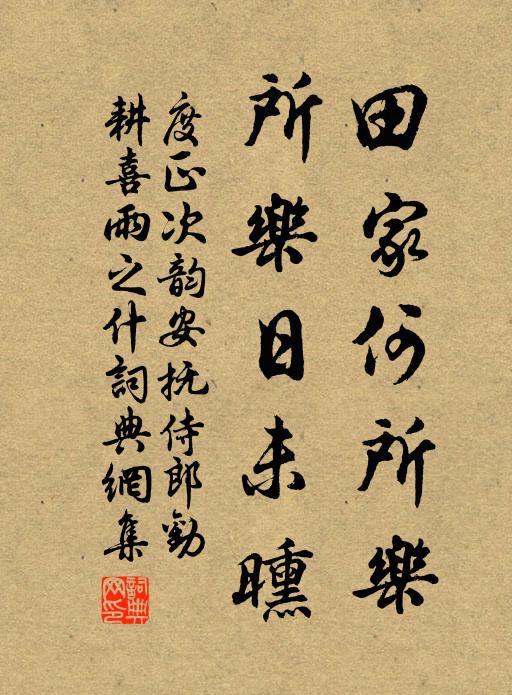 田家何所樂
所樂日未曛
度正次韵安抚侍郎勸
耕喜雨之什詞典網集
詞典网印